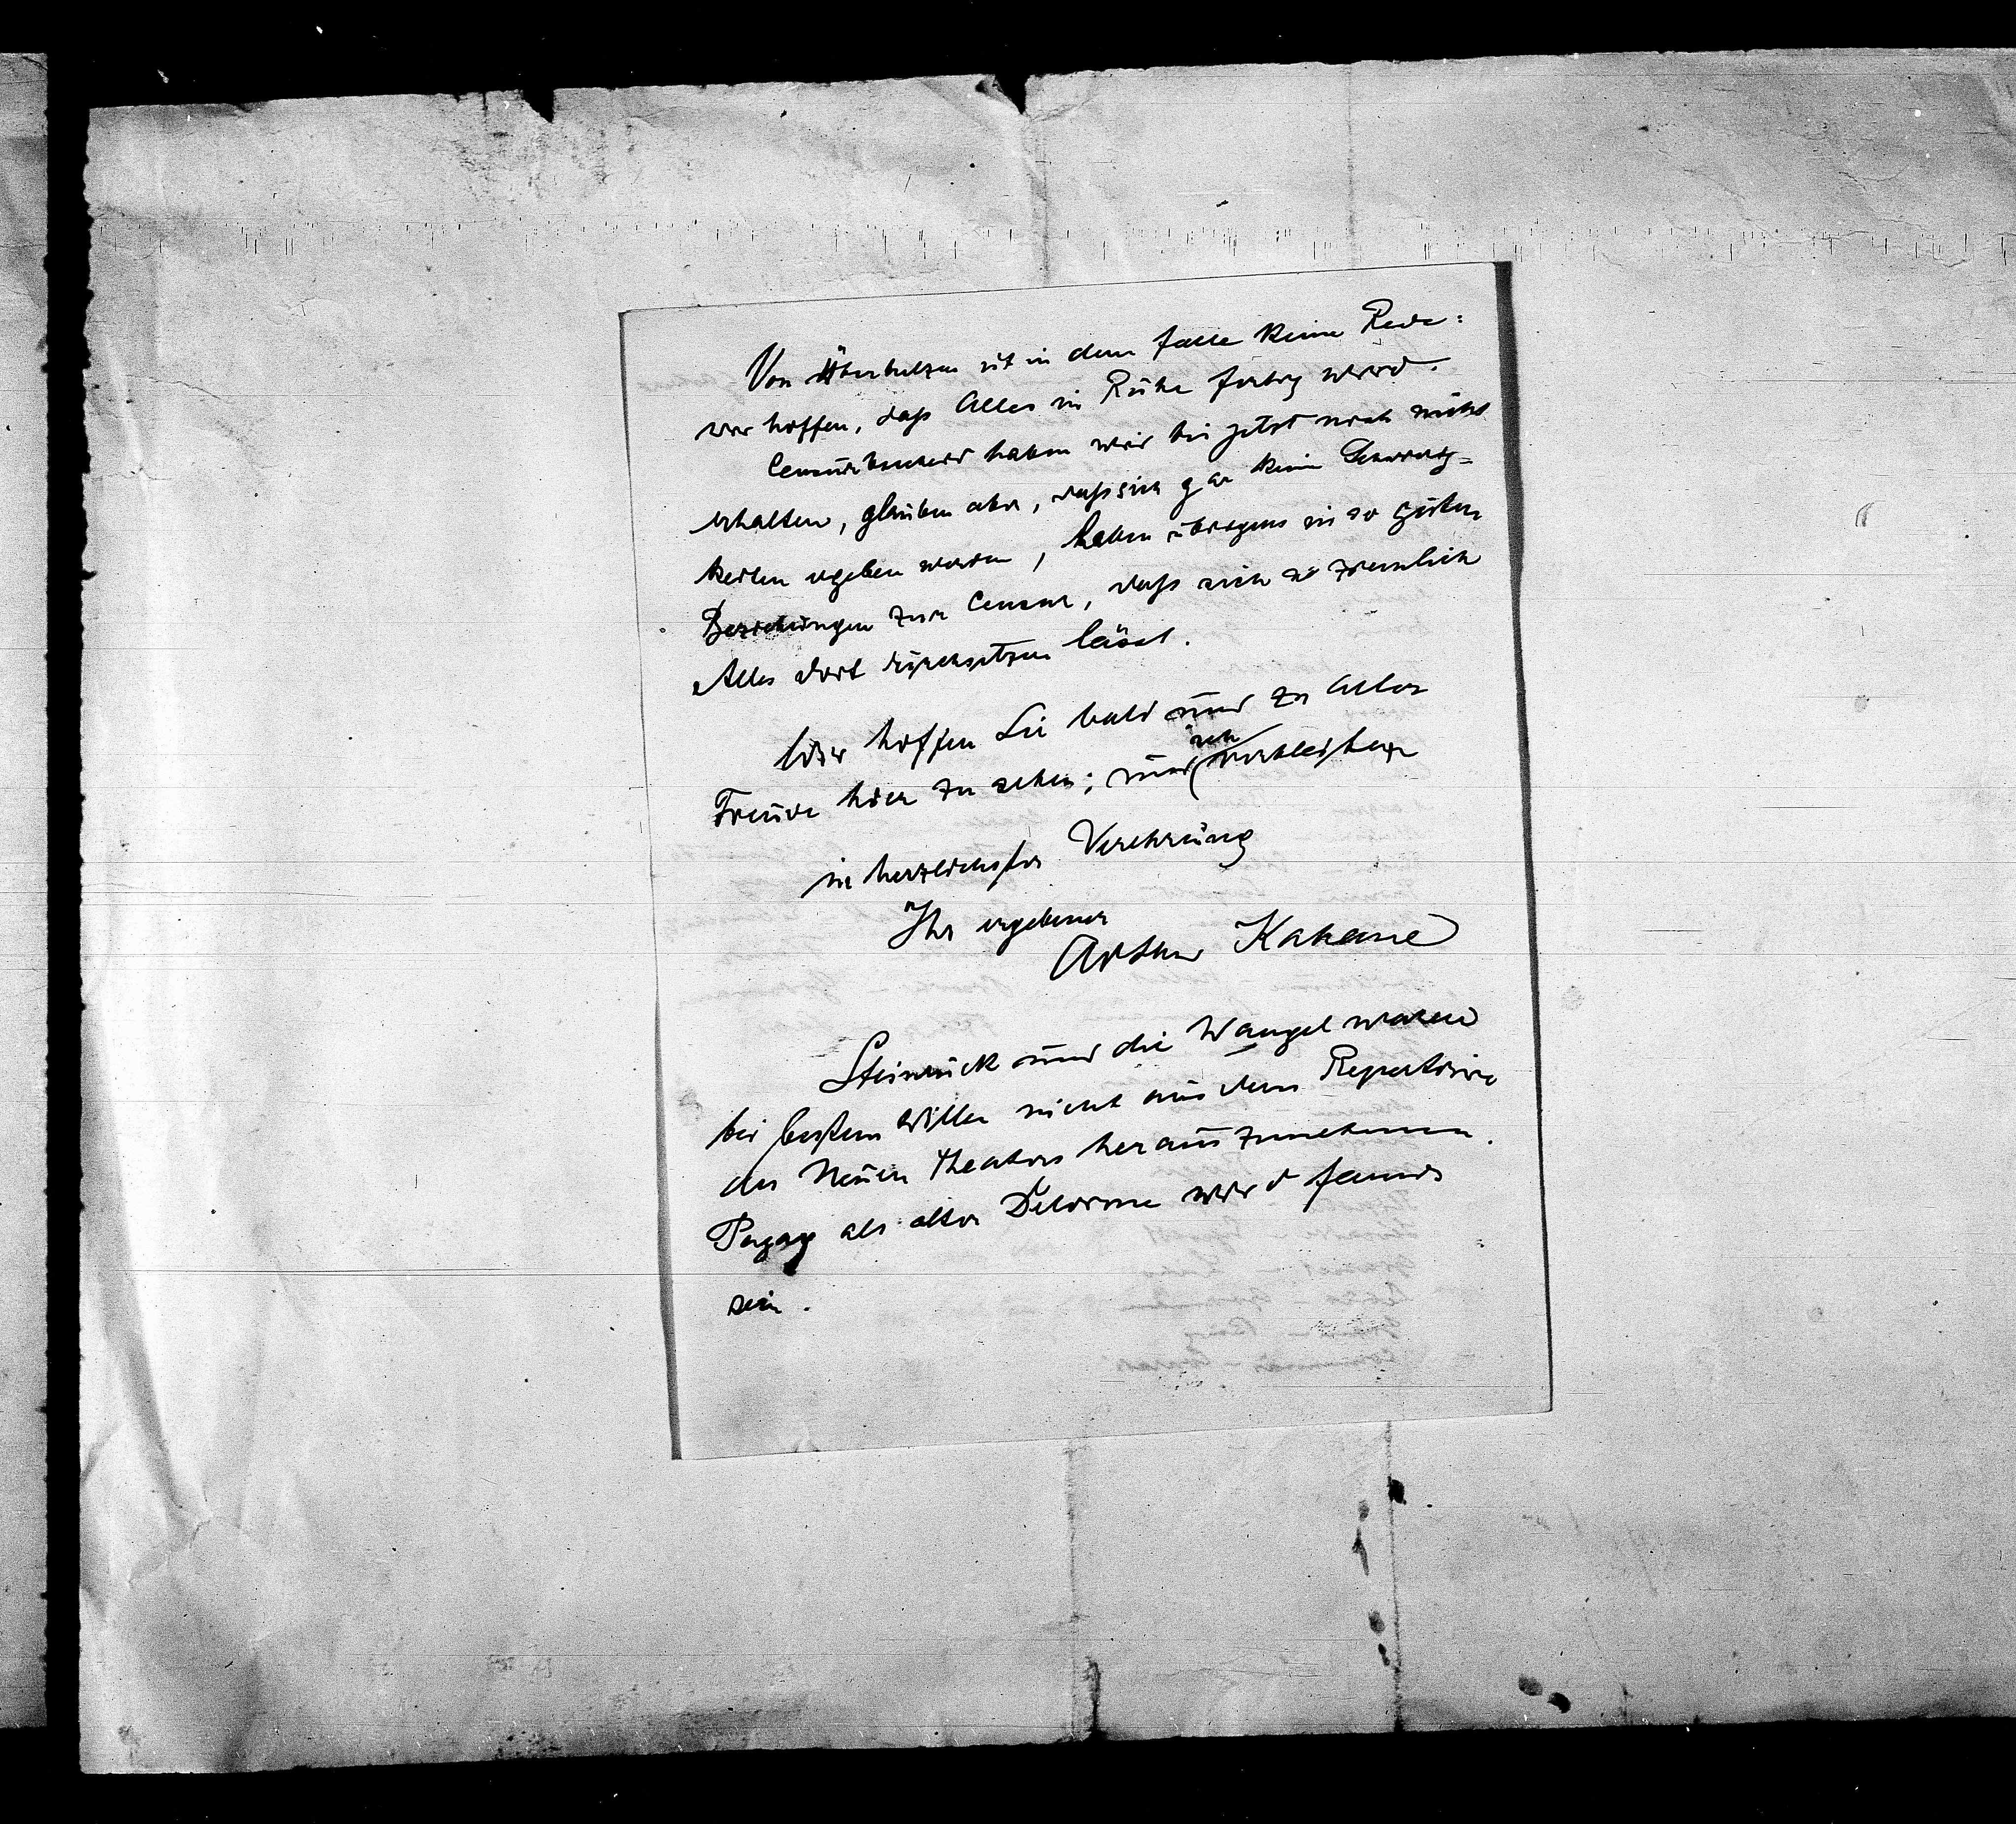 Von Überhetzen ist in dem Falle keine Rede:
wir hoffen, dass Alles in Ruhe fertig wird.
Censurbescheid haben wir bis jetzt noch nicht
erhalten, glauben aber, dass sich gar keine Schwierig=
keiten ergeben werden, haben übrigens in so guten
Beziehungen zur Censur, dass sich so ziemlich
Alles dort durchsetzen lässt.
Wir hoffen Sie bald und zu aller
Freude hier zu sehen; und ich verbleibe
in herzlichster Verehrung
Ihr ergebener
Arthur Kahane
Steinrück und die Wangel waren
bei bestem Willen nicht aus dem Repertoire
des Neuen Theaters herauszunehmen.
Pagay als alter Delorme wird famos
sein.